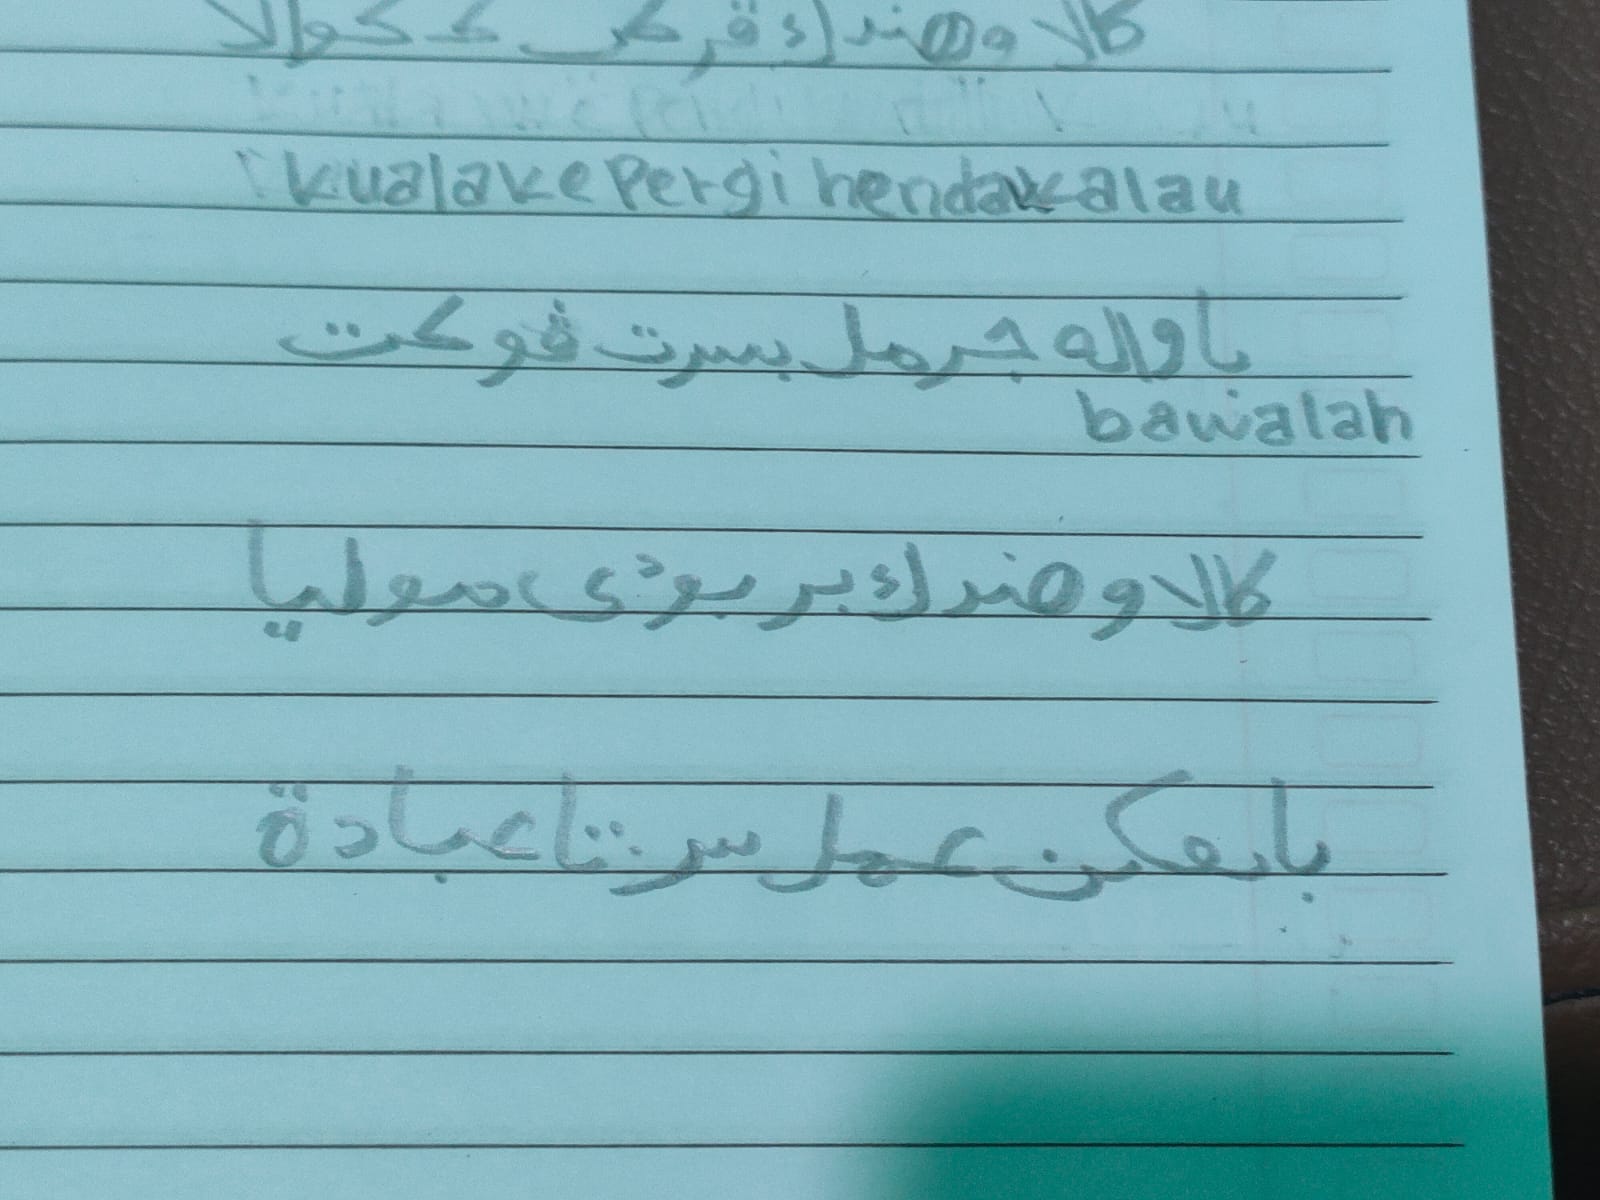 كالاو هندك ڤرݢي ك كوالا
kualake Pergi hendak kalau
باواله جرمل بسرت ڤوكت
bawalah
كالاو هندك بر بودي موليا
بايقكن عمل سرتا عبادة